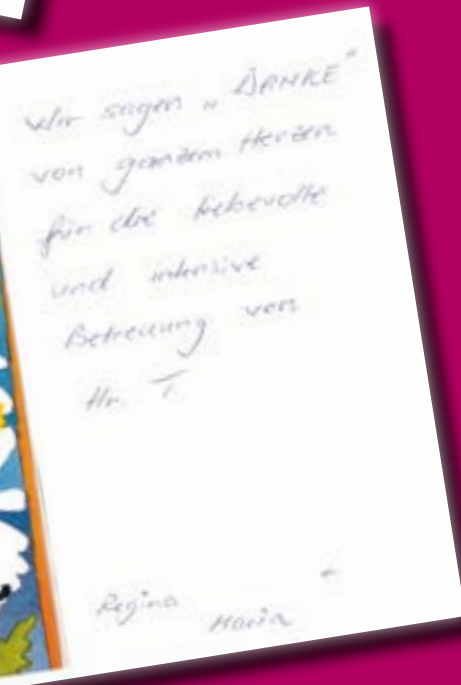 Wir sagen „DANKE"
von ganzem Herzen
für die liebevolle
und intensive
Betreuung von
Hr. T.
Regina +
Maria